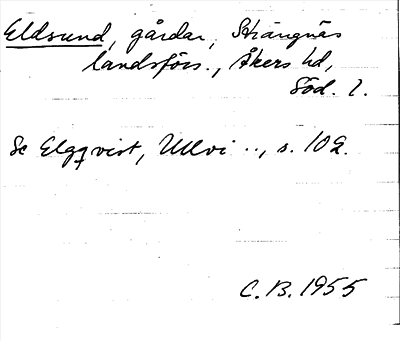 Eldsund, gårdar, Strängnäs
landsförs., Åkers hd,
Söd. l.
Se Elgqvist, Ullvi .., s. 102.
C.B. 1955